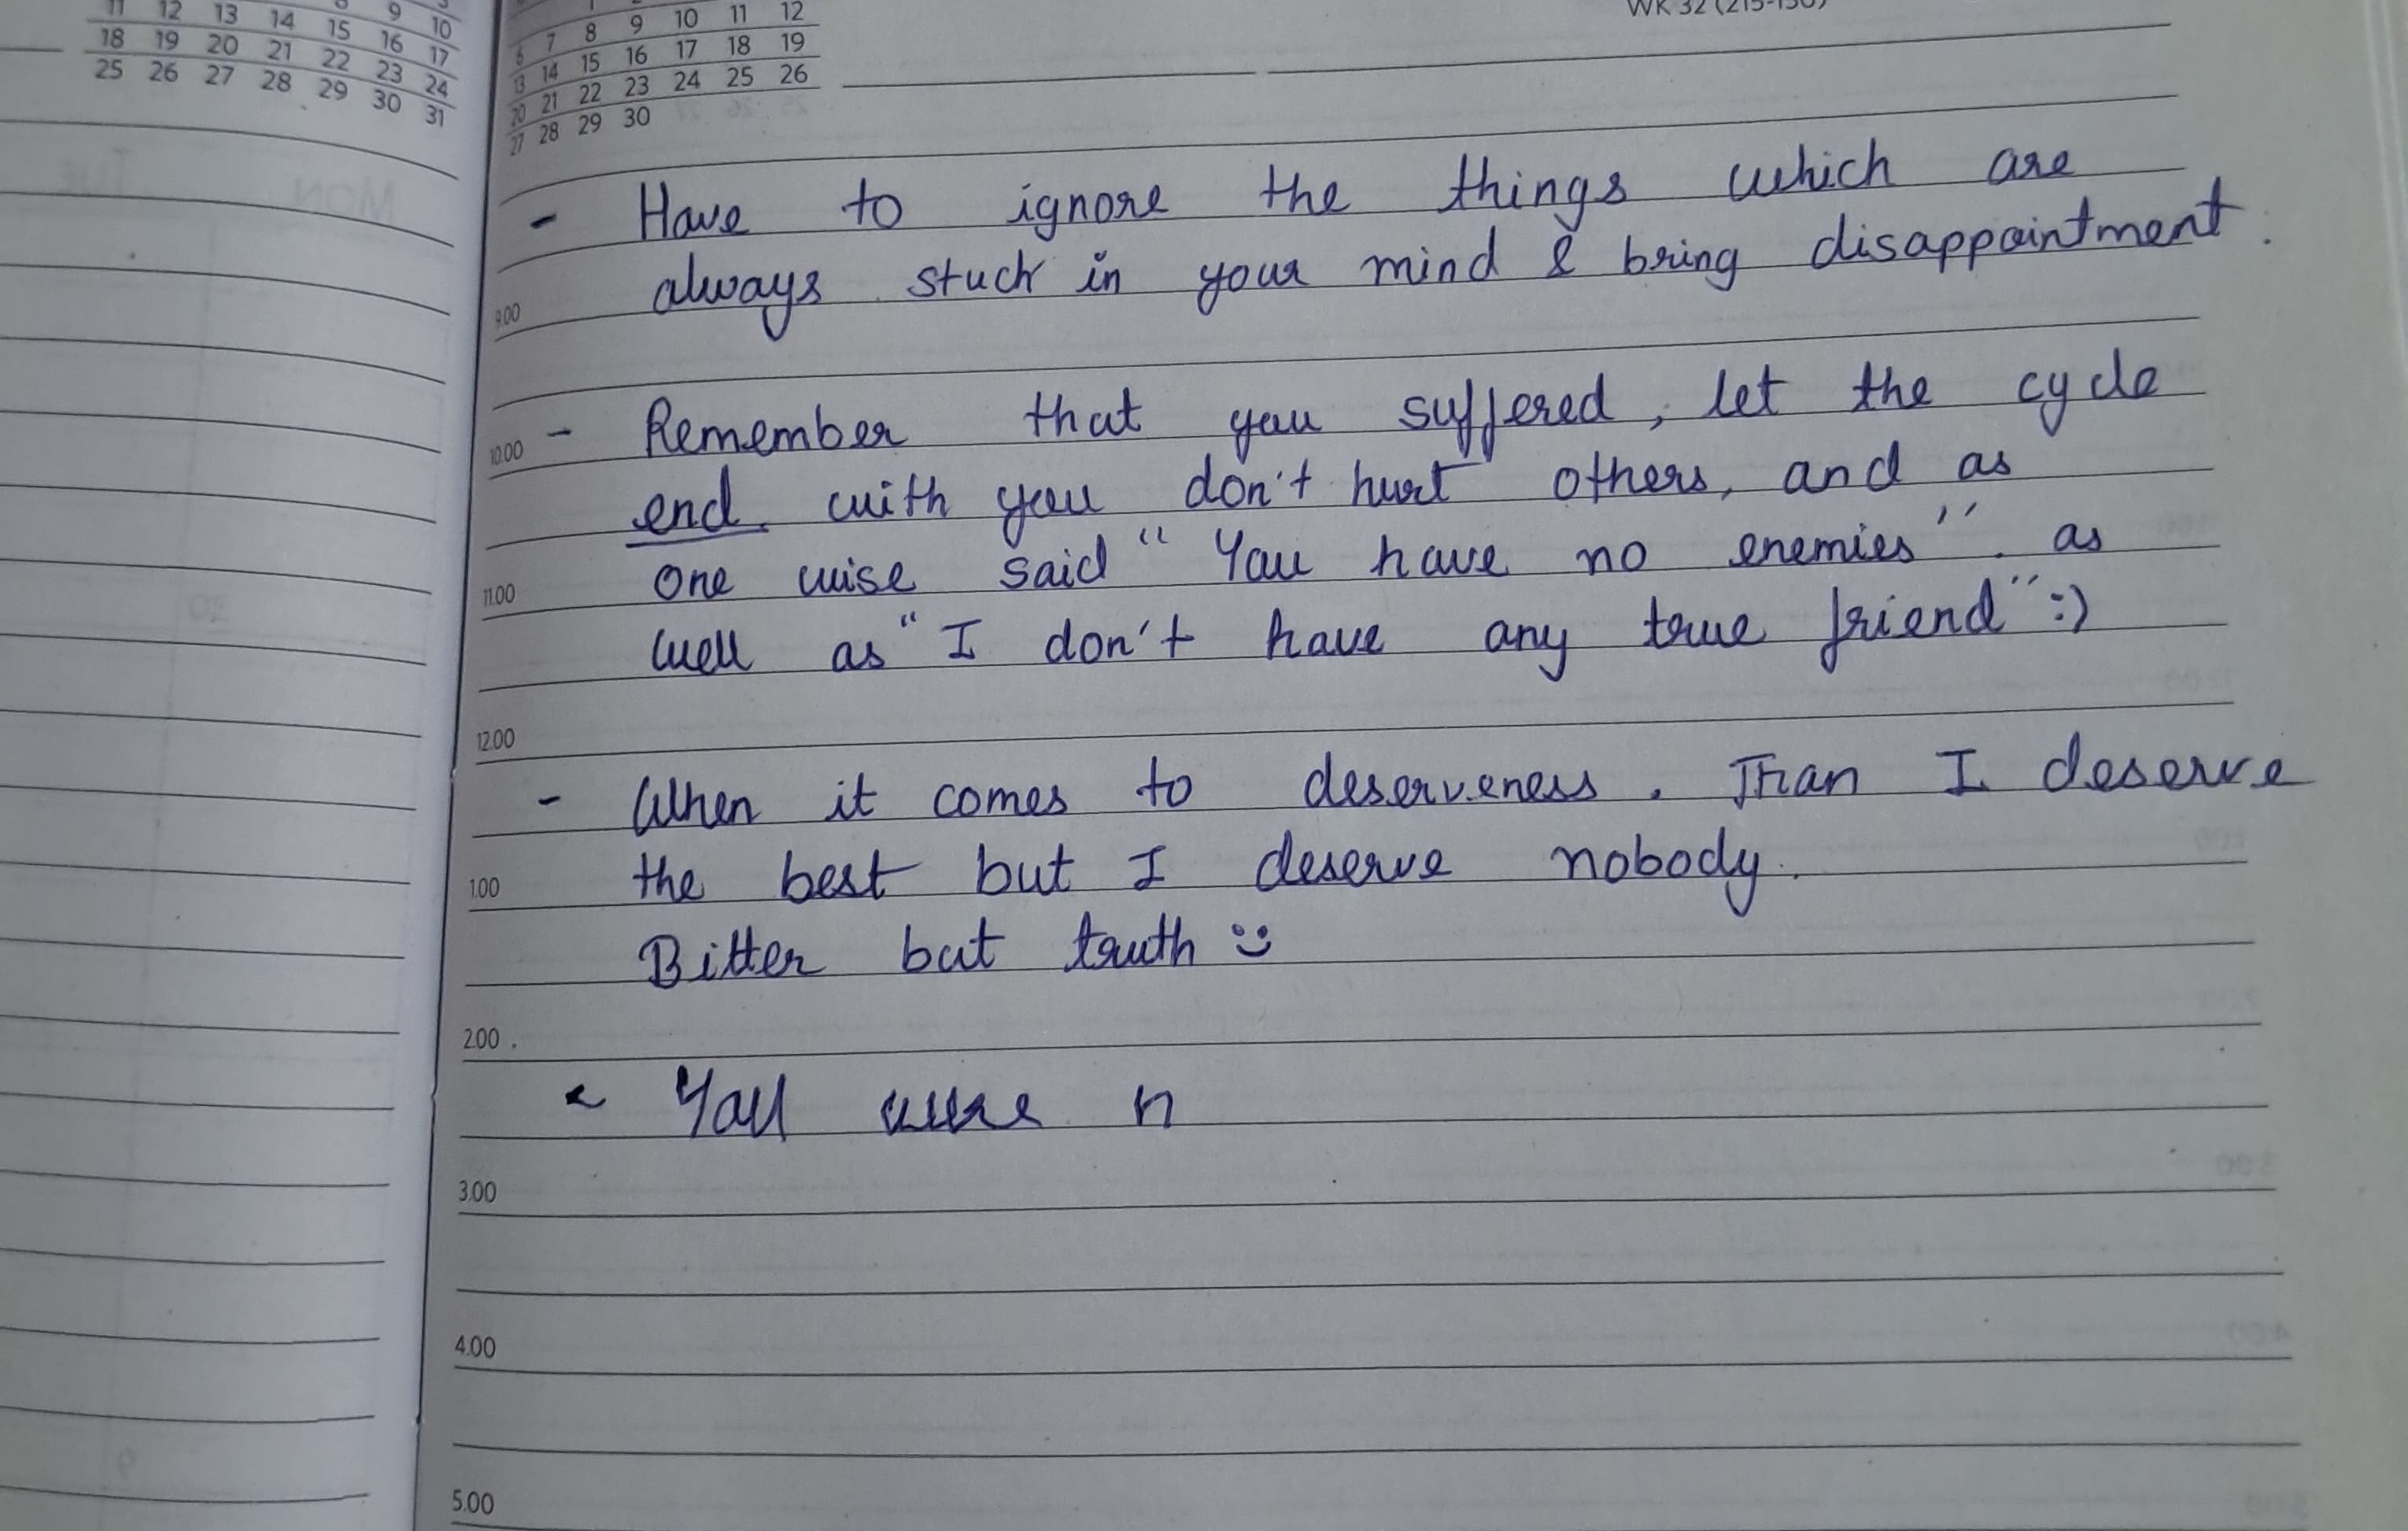 11 12 13 14 15 16 17
18 19 20 21 22 23 24
25 26 27 28 29 30 31
6 7 8 9 10 11 12
13 14 15 16 17 18 19
20 21 22 23 24 25 26
27 28 29 30
WK 32
- Have to ignore the things which are
always stuck in your mind & bring disappointment.
9.00
- Remember that you suffered, let the cycle
10.00
end with you don't hurt others, and as
one wise said "You have no enemies". as
11.00
well as "I don't have any true friend" :)
12.00
- When it comes to deserveness. Than I deserve
the best but I deserve nobody.
1.00
Bitter but truth :)
2.00
- You were n
3.00
4.00
5.00